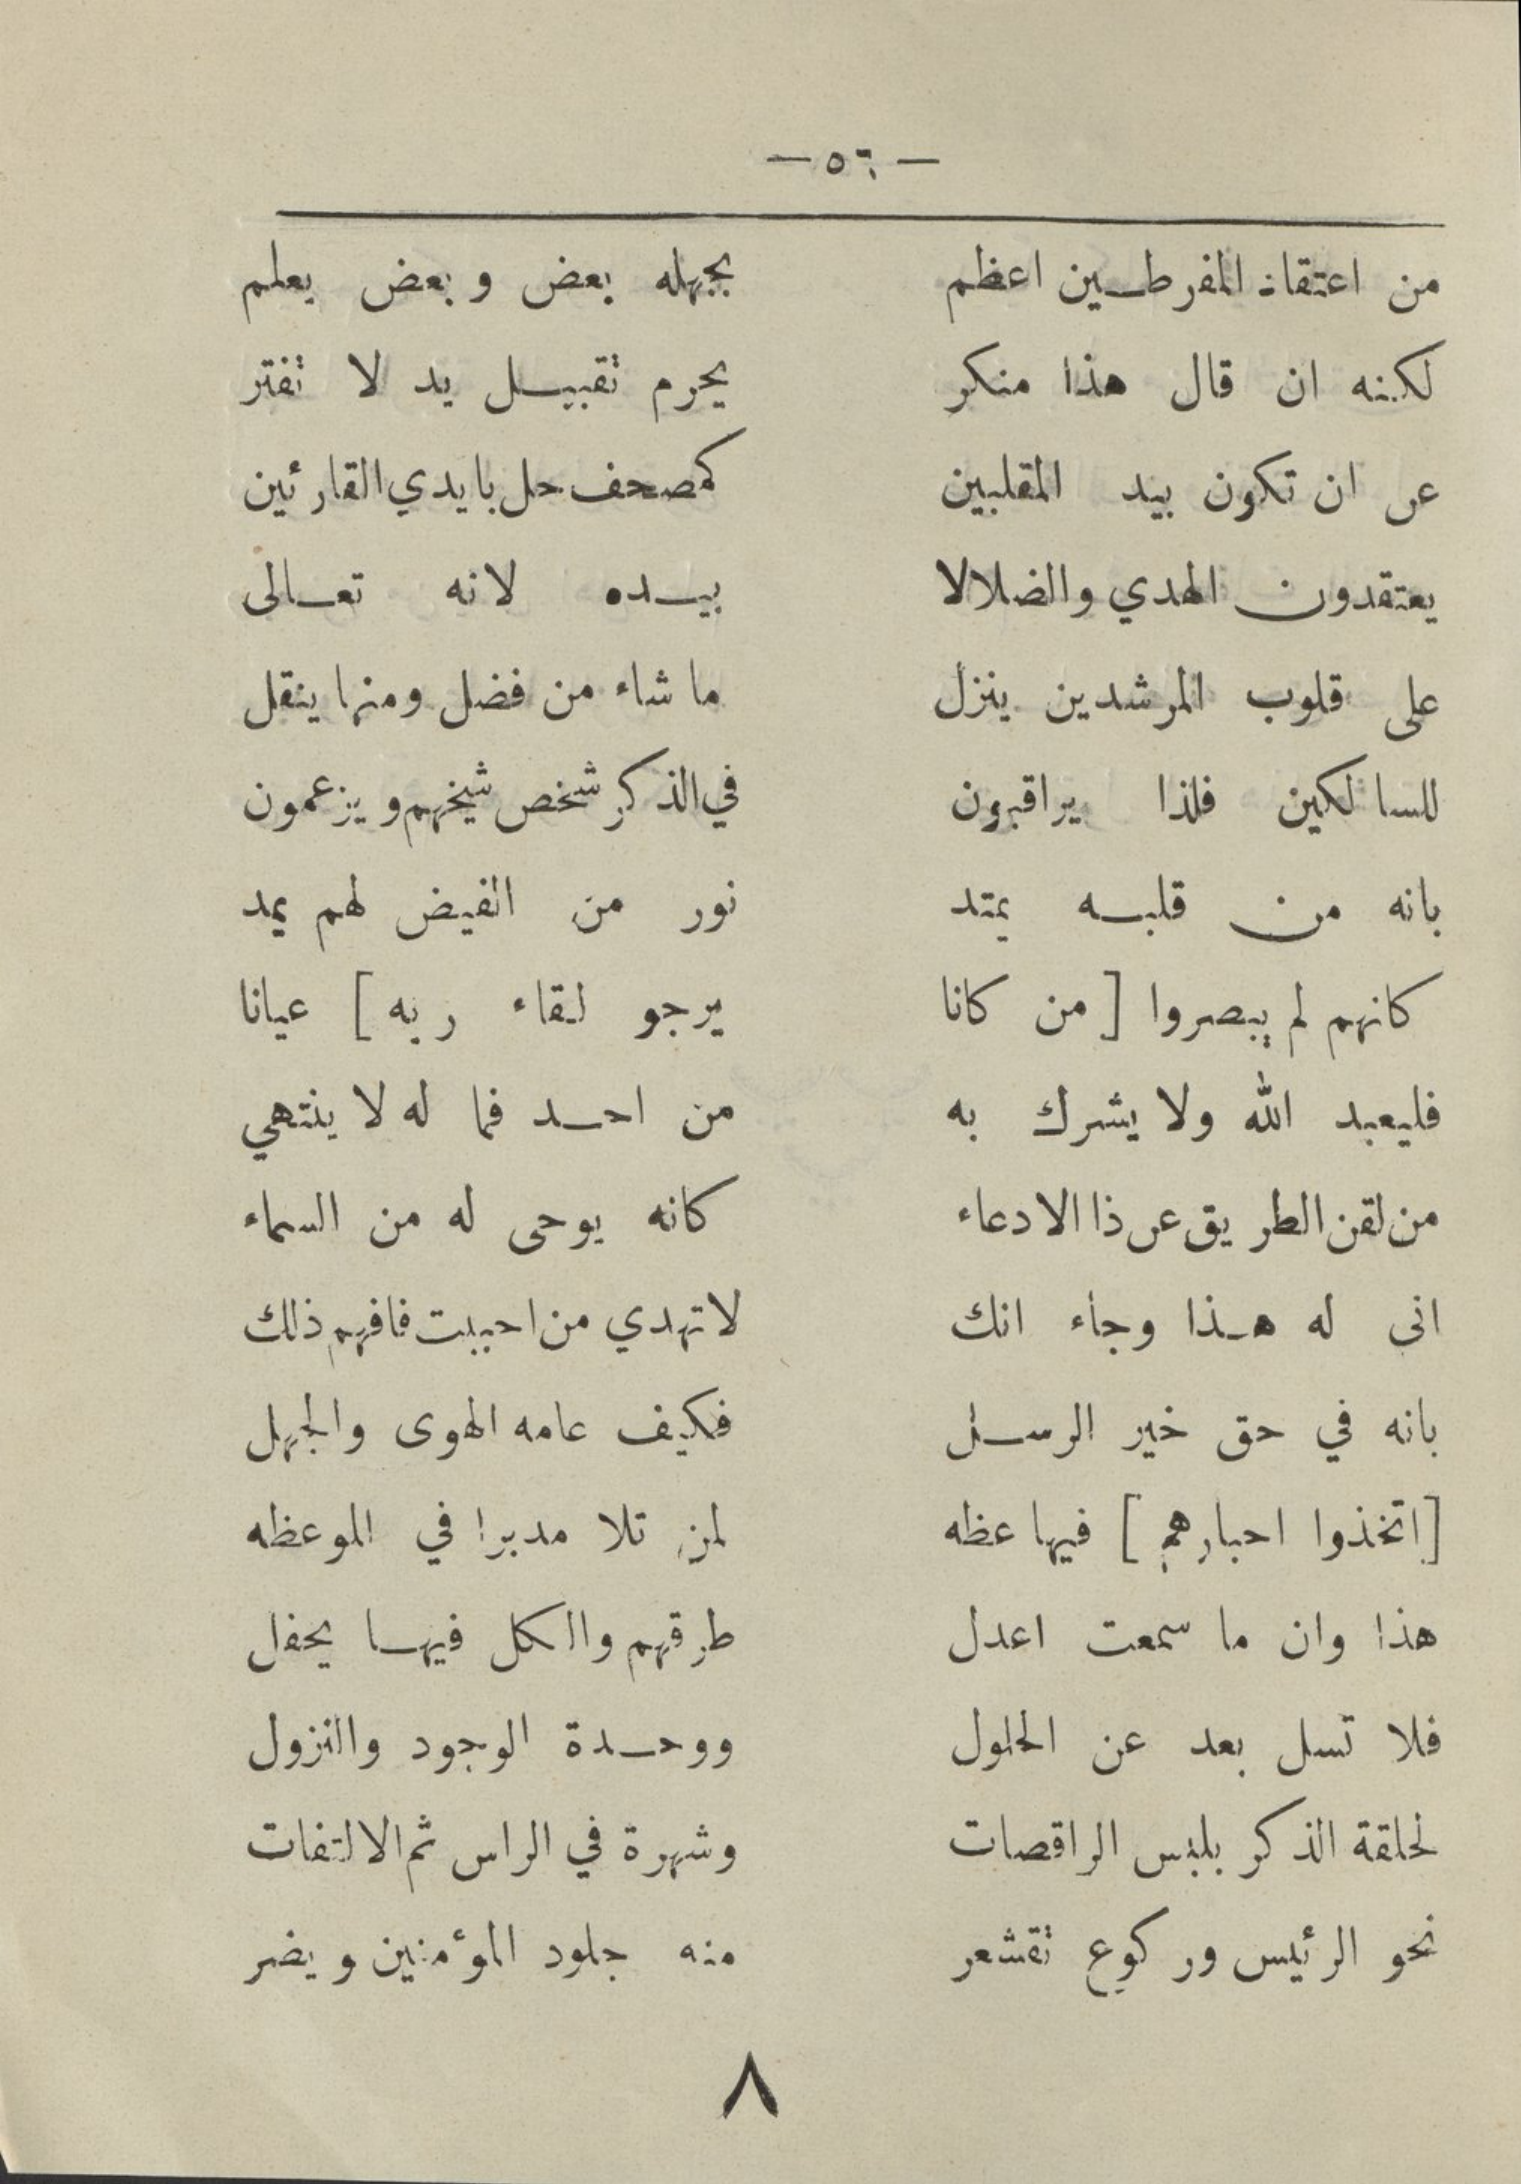 — ٥٦ —
من اعتقاد المفرطين اعظم يجهله بعض وبعض يعلم
لكنه ان قال هذا منكر يحرم تقبيل يد لا تفتر
عن ان تكون بيد المقلبين كمصحف حل بايدي القارئين
يعتقدون الهدي والضلالا بيده لانه تعالى
على قلوب المرشدين ينزل ما شاء من فضل ومنها ينقل
للسالكين فلذا يراقبون في الذكر شخص شيخهم ويزعمون
بانه من قلبه يمتد نور من الفيض لهم يمد
كانهم لم يبصروا [ من كانا يرجو لقاء ربه ] عيانا
فليعبد الله ولا يشرك به من احد فما له لا ينتهي
من لقن الطريق عن ذا الادعاء كانه يوحى له من السماء
انى له هذا وجاء انك لا تهدي من احببت فافهم ذلك
بانه في حق خير الرسل فكيف عامه الهوى والجهل
[ اتخذوا احبارهم ] فيها عظه لمن تلا مدبرا في الموعظه
هذا وان ما سمعت اعدل طرقهم والكل فيها يحفل
فلا تسل بعد عن الحلول ووحدة الوجود والنزول
لحلقة الذكر بلبس الراقصات وشهرة في الراس ثم الالتفات
نحو الرئيس وركوع تقشعر منه جلود المؤمنين ويضر
٨